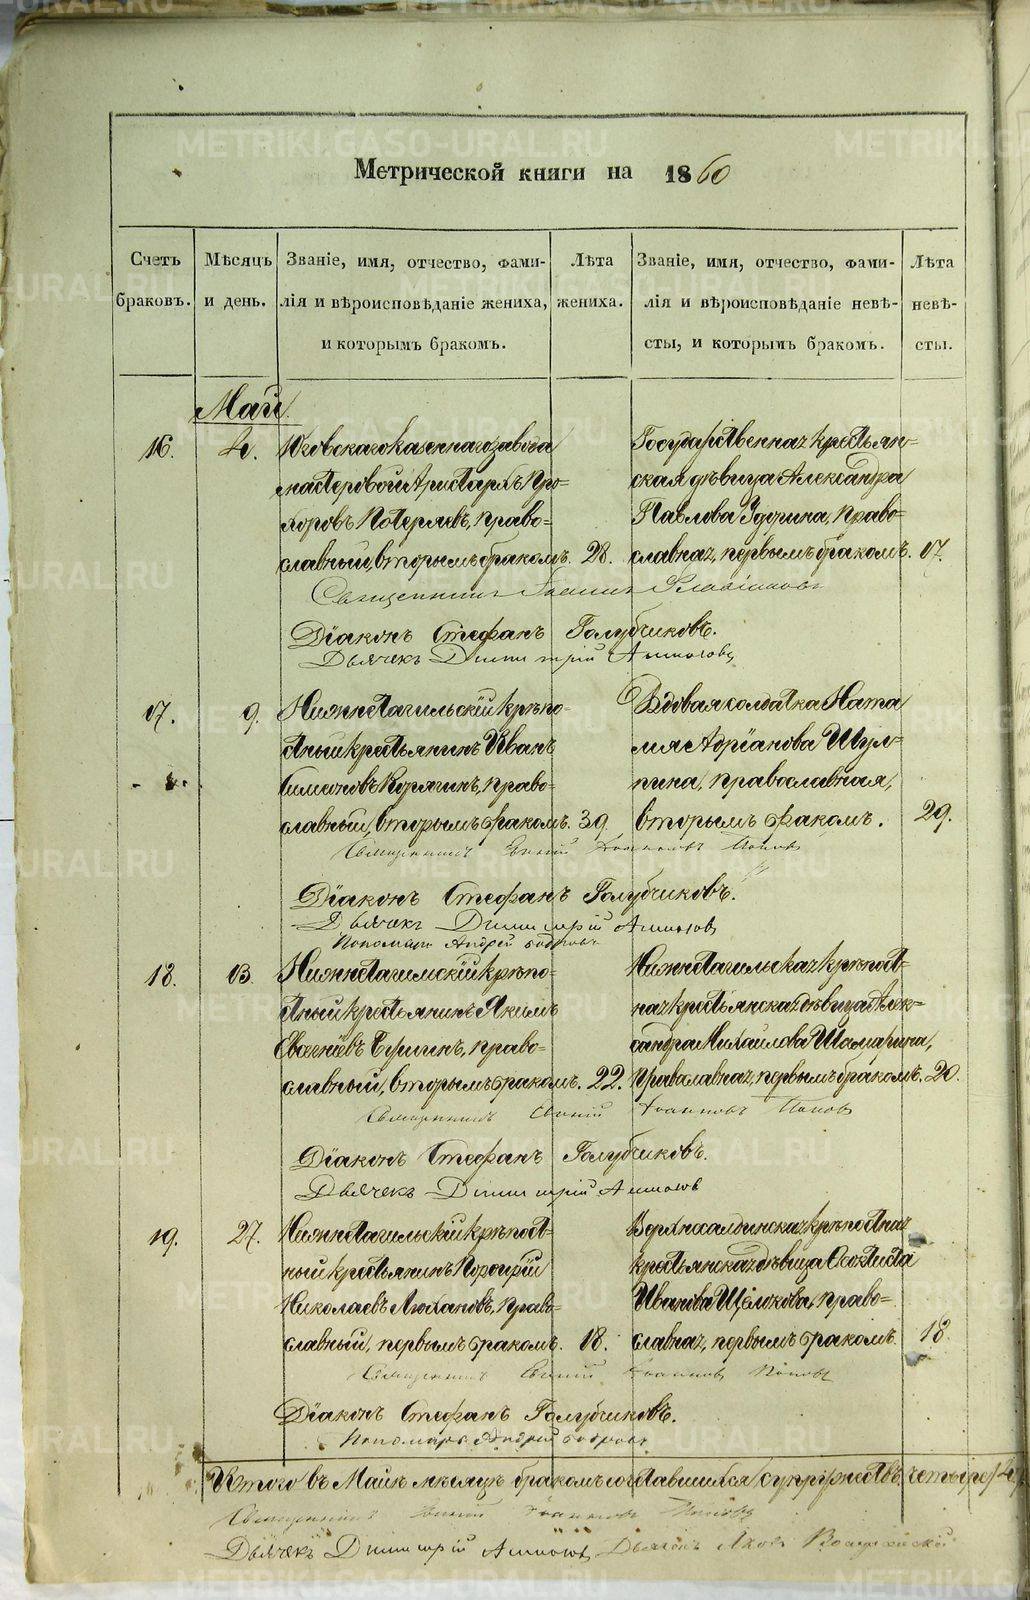 METRIKI.GASO-URAL.RU
Метрической книги на 1860
Счетъ браковъ.
Мѣсяцъ и день.
Званіе, имя, отчество, фами-
лія и вѣроисповѣданіе жениха,
и которымъ бракомъ.
Лѣта жениха.
Званіе, имя, отчество, фами-
лія и вѣроисповѣданіе невѣ-
сты, и которымъ бракомъ.
Лѣта невѣ-
сты.
Май
16.
4.
Юговскаго казеннаго завода
мастеровой Аристархъ Про-
хоровъ Потеряевъ, право-
славный, вторымъ бракомъ. 28.
Государственная крестьян-
ская дѣвица Александра
Павлова, право-
славная, первымъ бракомъ. 17.
Священникъ Іоаннъ
Діаконъ Стефанъ Голубчиковъ.
Дьячекъ Димитрій
17.
9.
Нижнетагильскій крѣпо-
стный крестьянинъ Иванъ
Симеоновъ Корякинъ, право-
славный, вторымъ бракомъ. 39.
Вдовая солдатка Ната
лія Адріанова Шул-
пина, православная,
вторымъ бракомъ. 29.
Священникъ Евгеній Іоанновъ Поповъ
Діаконъ Стефанъ Голубчиковъ.
Дьячекъ Димитрій
Пономарь Андрей Бобровъ
18.
13.
Нижнетагильскій крѣпо-
стный крестьянинъ Якимъ
Евгеніевъ, право-
славный, вторымъ бракомъ. 22.
Нижнетагильская крѣпост-
ная крестьянская дѣвица Алек-
сандра Михайлова Шамарина,
православная, первымъ бракомъ. 20.
Священникъ Евгеній Іоанновъ Поповъ
Діаконъ Стефанъ Голубчиковъ.
Дьячекъ Димитрій
19.
27.
Нижнетагильскій крѣпост-
ный крестьянинъ Порфирій
Николаевъ Люхановъ, право-
славный, первымъ бракомъ. 18.
Верхнесалдинская крѣпостная
крестьянская дѣвица Ѳеоктиста
Иванова Щелокова, право-
славная, первымъ бракомъ. 18.
Священникъ Евгеній Іоанновъ Поповъ
Діаконъ Стефанъ Голубчиковъ.
Пономарь Андрей Бобровъ
Итого въ Маіѣ мѣсяцѣ бракомъ сочетавшихся супружествъ четыре /4/
Священникъ Евгеній Іоанновъ Поповъ
Дьячекъ Димитрій